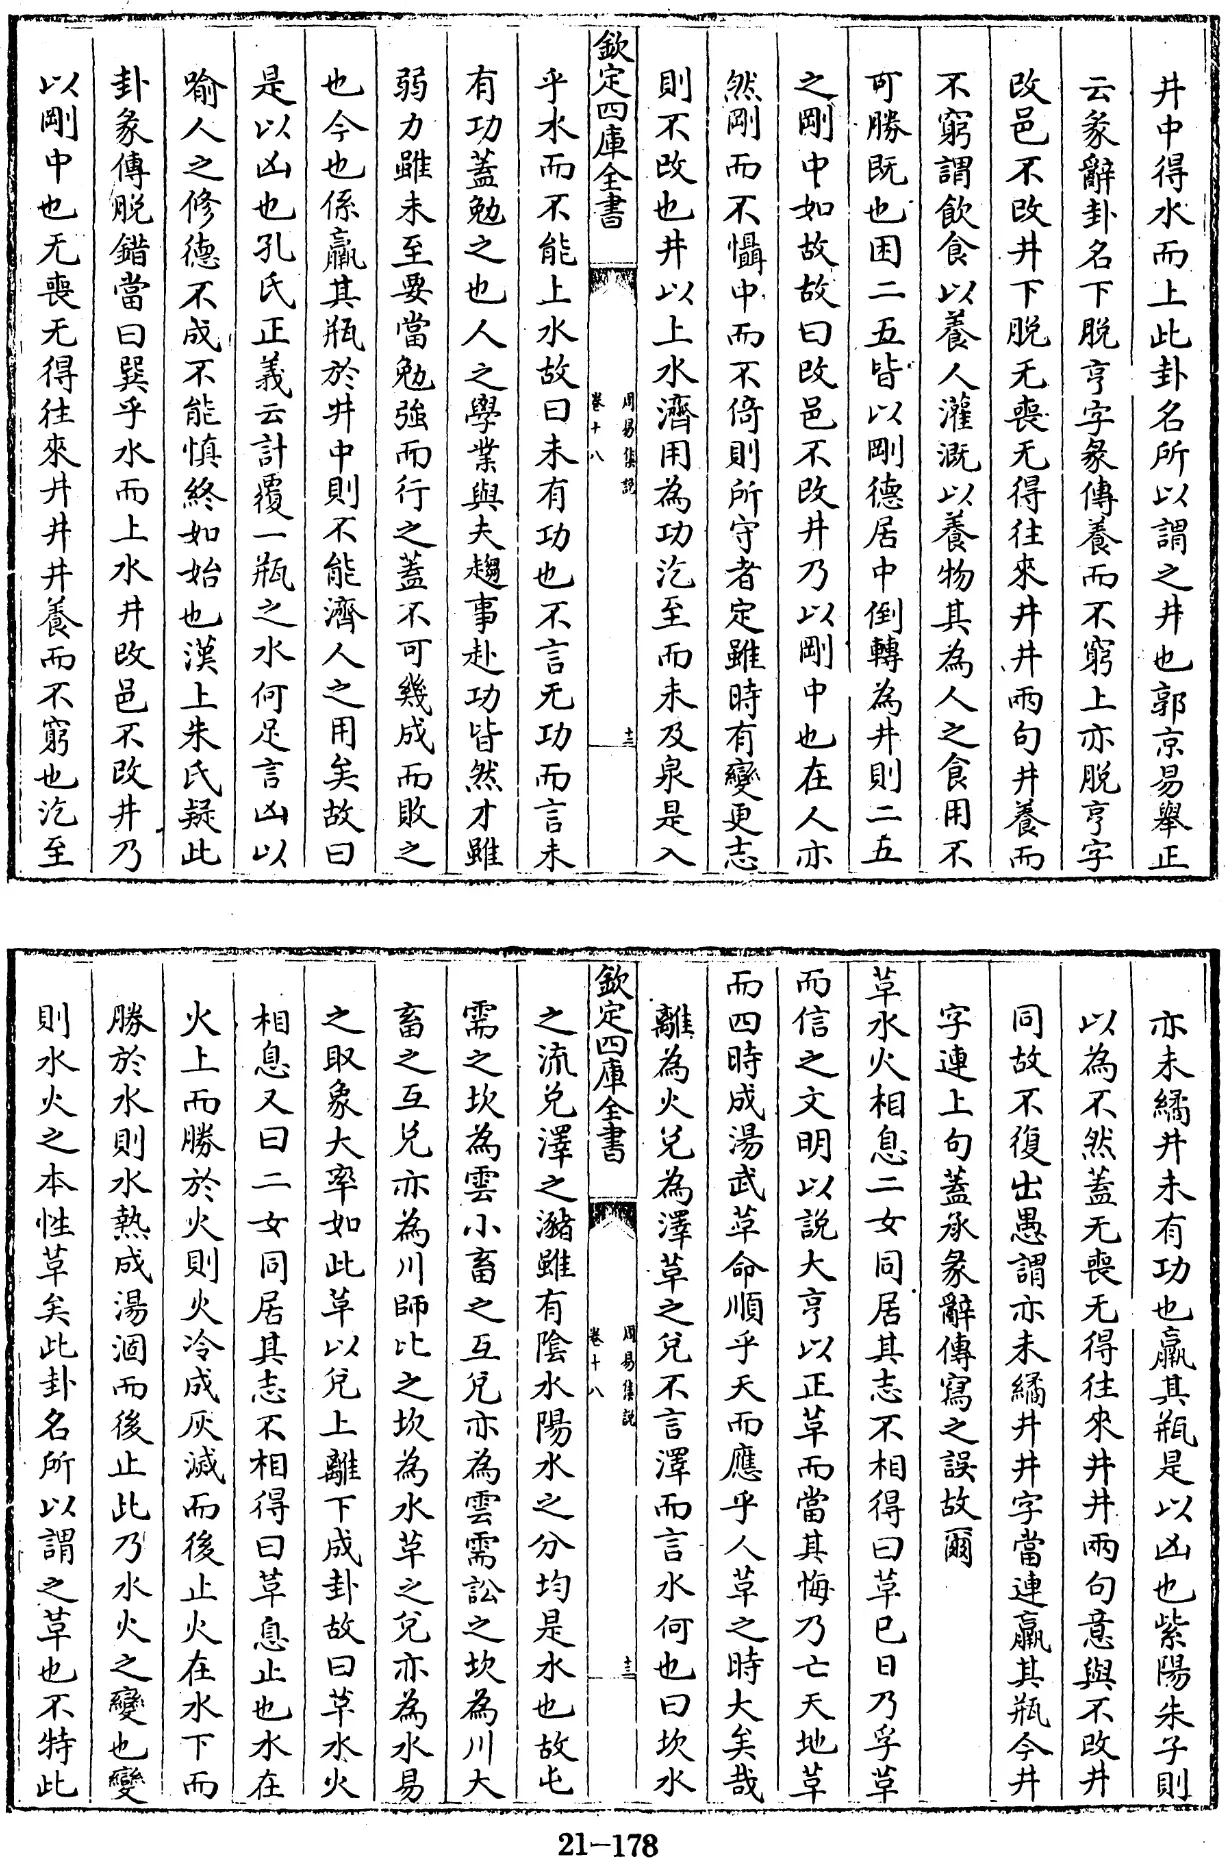 井中得水而上此卦名所以謂之井也郭京易舉正
云彖辭卦名下脱亨字彖傳養而不窮上亦脱亨字
改邑不改井下脱无喪无得往來井井兩句井養而
不窮謂飲食以養人灌溉以養物其為人之食用不
可勝既也困二五皆以剛德居中倒轉為井則二五
之剛中如故故曰改邑不改井乃以剛中也在人亦
然剛而不懾中而不倚則所守者定雖時有變更志
則不改也井以上水濟用為功汔至而未及泉是入
欽定四庫全書
周易集說
卷十八
十二
乎水而不能上水故曰未有功也不言无功而言未
有功蓋勉之也人之學業與夫趨事赴功皆然才雖
弱力雖未至要當勉強而行之蓋不可幾成而敗之
也今也係羸其瓶於井中則不能濟人之用矣故曰
是以凶也孔氏正義云計覆一瓶之水何足言凶以
喻人之修德不成不能慎終如始也漢上朱氏疑此
卦彖傳脱錯當曰巽乎水而上水井改邑不改井乃
以剛中也无喪无得往來井井井養而不窮也汔至
亦未繘井未有功也羸其瓶是以凶也紫陽朱子則
以為不然蓋无喪无得往來井井兩句意與不改井
同故不復出愚謂亦未繘井井字當連羸其瓶今井
字連上句蓋承彖辭傳寫之誤故爾
革水火相息二女同居其志不相得曰革已日乃孚革
而信之文明以說大亨以正革而當其悔乃亡天地革
而四時成湯武革命順乎天而應乎人革之時大矣哉
離為火兌為澤革之兌不言澤而言水何也曰坎水
欽定四庫全書
周易集說
卷十八
十三
之流兌澤之瀦雖有陰水陽水之分均是水也故屯
需之坎為雲小畜之互兌亦為雲需訟之坎為川大
畜之互兌亦為川師比之坎為水革之兌亦為水易
之取象大率如此革以兌上離下成卦故曰革水火
相息又曰二女同居其志不相得曰革息止也水在
火上而勝於火則火冷成灰滅而後止火在水下而
勝於水則水熱成湯涸而後止此乃水火之變也變
則水火之本性革矣此卦名所以謂之革也不特此
21-178